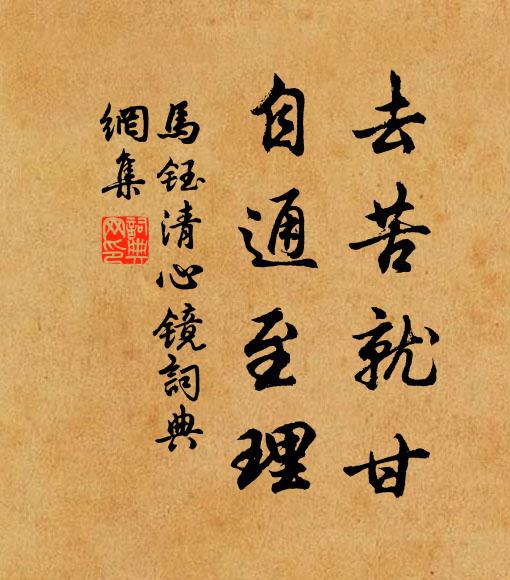 去苦就甘
自通至理
馬鈺清心镜詞典
網集
詞典網印